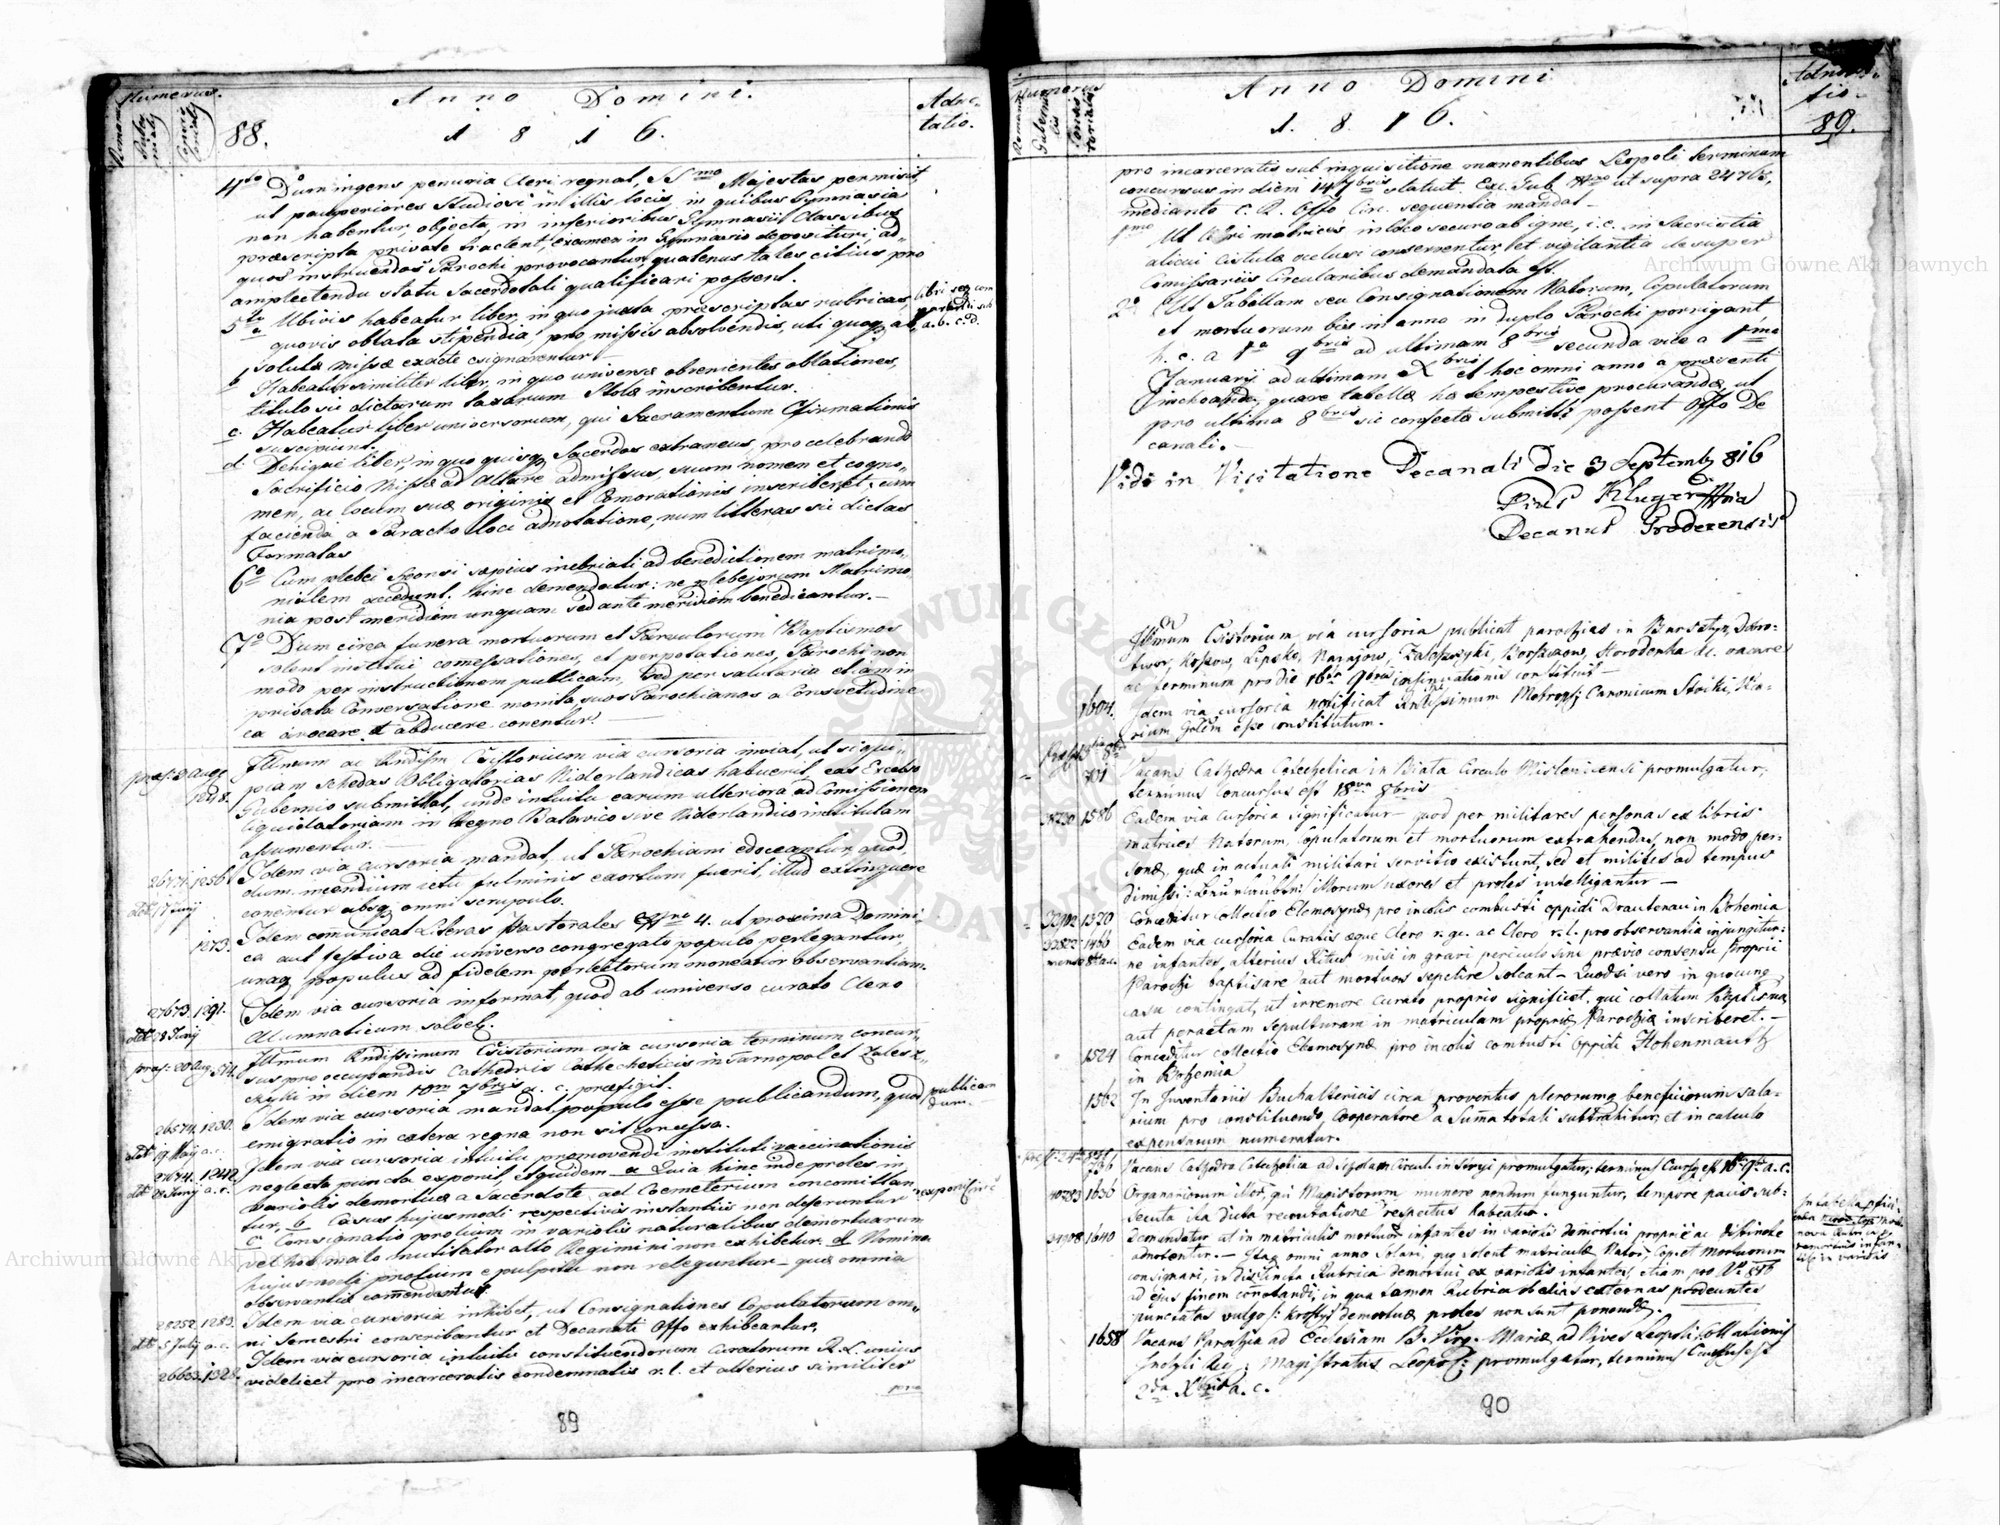 Numerus.
Romanus
Guber
nialis
Consis
torialis
88.
Anno Domini.
1 8 1 6.
Adno-
tatio.
4to Dum ingens penuria Cleri regnat, SSmo Majestas permisit,
ut pauperiores Studiosi in illis locis, in quibus Gymnasia
non habentur, objecta, in inferioribus Gymnasii Classibus
præscripta private tractent, examen in Gymnasio deposituri, ad
quos instruendos Parochi provocantur, quatenus tales citius pro
amplectendo statu Sacerdotali qualificari possent.
5to a Ubivis habeatur liber, in quo juxta præscriptas rubricas,
quovis oblata stipendia, pro missis absolvendis, uti quoq ab
soluta missa exacte csignarentur.
libri seq com
parandi sub
a. b. c. d.
b Habeatur similiter liber, in quo universæ obvenientes oblationes,
titulo sic dictarum taxarum Stolæ inscribentur.
c. Habeatur liber universorum, qui Sacramentum Cfirmationis
suscipiunt.
d. Denique liber, in quo quisq Sacerdos extraneus, pro celebrando
Sacrificio Missæ ad Altare admissus, suum nomen et cogno-
men, ac locum suæ originis et Comorationis inscriberet, cum
facienda a Parocho loci adnotatione, num litteras sic dictas
Formatas
6to Cum plebei Sponsi sæpius inebriati ad benedictionem matrimo-
nialem accedunt. hinc demandatur: ne plebejorum Matrimo
nia post meridiem unquam sed ante meridiem benedicantur.
7o Dum circa funera mortuorum et Parvulorum Baptismos
solent institui comessationes, et perpotationes, Parochi non
modo per instructionem publicam, sed per salutaria etiam in
privata Conversatione monita, suos Parochianos a Consvetudine
ea avocare et abducere conentur.
præs: 3 Aug
1248.
Illmum ac Rndissm Csistorium via cursoria inviat, ut si qui-
piam schedas Obligatorias Niderlandicas habuerit, eas Excelso
Gubernio submittat, unde intuitu earum ulteriora ad Comissionem
liquidatoriam in Regno Batavico sive Niderlandico institutam
assumentur.
26171. 1256
dto 17 Junij
Idem via cursoria mandat, ut Parochiani edoceantur, quod
dum incendium ictu fulminis exortum fuerit, illud extinguere
conentur absq omni scrupulo.
1273.
Idem communicat Literas Pastorales Nro 4. ut proxima Domini
ca aut festiva die universo congregato populo perlegantur,
unaq populus ad fidelem perlectorum moneatur observantiam.
27673. 1291.
dto 28 Junij
Idem via cursoria informat, quod ab universo curato Clero
Alumnaticum solvet.
præs: 20 Aug. 514.
Illmum Rndissimum Csistorium via cursoria terminum concur-
sus pro occupandis Cathedris Catheheticis in Tarnopol et Zalesz-
czyki in diem 10m 7bris a. c. præfigit.
26574. 1230.
dto 19 Maij a. c.
Idem via cursoria mandat, populo esse publicandum, quod
emigratio in cætera regna non sit concessa.
publican
dum.
27674. 1242.
dto 28 Junij a. c.
Idem via cursoria intuitu promovendi instituti vaccinationis
neglecta puncta exponit, siquidem a Quia hinc inde proles in
variolis demortuæ a Sacerdote ad Coemeterium concomittan
tur, b Casus hujusmodi respectivis instantiis non deferuntur
c Consignatio prolium in variolis naturalibus demortuarum
vel hoc malo mutilator alto Regimini non exhibetur. d Nomina
hujusmodi prolium e pulpitu non releguntur — quæ omnia
observantiæ comendantur.
28252. 1283.
dto 5 Julij a. c.
Idem via cursoria inhibet, ut Consignationes Copulatorum om-
ni Semestri conscribantur et Decanali Offo exhibeantur.
26663. 1328.
Idem via cursoria intuitu constituendorum Curatorum R. L. unius
videlicet pro incarceratis condemnatis r. l. et alterius similiter
pro
89
Numerus
Romanus
Guberna
lis
Consis
torialis
Anno Domini
1. 8. 1 6.
Adno-
tio.
89.
pro incarceratis sub inquisitione manentibus Leopoli terminum
concursus in diem 14 7bris statuit. Exc. Gub. Nro ut supra 24768,
mediante C. R. Offo Circ. sequentia mandat —
1mo Ut libri matrices in loco securo ab igne, i. e. in Sacristia
alicui cistulæ occlusi conserventur, et vigilantia desuper
Comissariis Circularibus demandata est.
2o Ut Tabellam seu Consignationem Natorum, Copulatorum
et mortuorum bis in anno in duplo Parochi porrigant,
h. e. a 1a 9bris ad ultimam 8bris secunda vice a 1ma
Januarij ad ultimam Xbris et hoc omni anno a præsenti
inchoando, quare tabellæ hæ tempestive procurandæ, ut
pro ultima 8bris sic confecta submitti possent Offo De
canali.
Vidi in Visitatione Decanali Die 3 Septemb 816
Pius Kluger
Decanus Grodecensis
Illmum Csistorium via cursoria publicat parochias in Bursztyn, Dobro-
twor, Kossow, Lipsko, Narajow, Zaleszczyki, Borszczow, Horodenka &c. vacare
ac terminum pro die 16ta 9bris insinuationis constituit —
1604.
Idem via cursoria notificat Rndissimum Metropol: Canonicum Stoiki, Vica-
rium Gnlem esse constitutum.
801
Vacans Cathedra Catechetica in Biała Circulo Mislenicensi promulgatur,
terminus Concursus est 18va 8bris
38230 1586
Eadem via Cursoria Significatur quod per militares personas ex libris
matrices Natorum, Copulatorum et mortuorum extrahendas, non modo per-
sonæ, quæ in actuali militari servitio existunt, sed et milites ad tempus
dimissi: beurlaubte: illorum uxores et proles intelligantur —
32102 1520
Conceditur collectio Elemosynæ pro incolis combusti oppidi Drautenau in Bohemia
32822 1466
Eadem via cursoria Curatis æque Clero r. gr. ac Clero r. l. pro observantia injungitur:
ne infantes alterius Ritus nisi in gravi periculo sine prævio consensu Proprii
Parochi baptisare aut mortuos sepelire soleant — Quodsi vero in quocunq
casu contingat, ut irremore Curato proprio significet, qui collatum Baptisma
aut peractam sepulturam in matriculam propriæ Parochiæ inscriberet. —
1524
Conceditur collectio Elemosynæ pro incolis combusti Oppidi Hohenmauth
in Bohemia
1562
In Inventariis Buchaltericis circa proventus plerorumq beneficiorum sala-
rium pro constituendo Cooperatore a Suma totali subtrahitur, et in calculo
expensarum numeratur.
736
Vacans Cathedra Catechetica ad Scholam Circuli in Stryi promulgatur; terminus Cursus est 16ta 9bris a. c.
40283 1636
Organariorum illor, qui Magistrorum munere nondum funguntur, tempore pacis sub-
secuta ita dicta recrutatione respectus habeatur.
34908 1640
Demandatur ut in matriculis mortuor infantes in variolis demortui proprie ac distincte
adnotentur. — Itaq omni anno Solari, quo solent matriculæ Nator, Cop. et Mortuorum
consignari, in distincta Rubrica demortui ex variolis infantes, etiam pro Ao 816
ad ejus finem connotandi, in qua tamen Rubrica ob alias externas prodeuntes
punctatas vulgo: krosty: demortuæ proles non sunt ponendæ.
1658
Vacans Parochia ad Ecclesiam B. Virg. Mariæ ad Nives Leopoli, Collationis
Inclyti Magistratus Leopol: promulgatur, terminus Cursus est
2da Xbris a. c.
90
Archiwum Główne Akt Dawnych
Archiwum Główne Akt Dawnych
ARCHIWUM GŁÓWNE AKT DAWNYCH